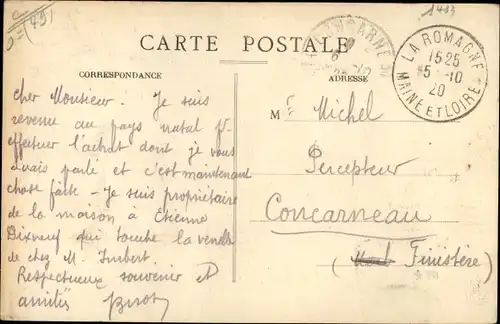 (49)
1483
CARTE POSTALE
LA ROMAGNE
15 25
5 - 10
20
MAINE ET LOIRE
CORRESPONDANCE
ADRESSE
Cher Monsieur. Je suis
revenue au pays natal pr
effectuer l'achat dont je vous
avais parlé et c'est maintenant
chose faite - Je suis propriétaire
de la maison à Etienne
Dixneuf qui touche la vendée
de chez M. Imbert.
Respectueux souvenir et
amitiés
Mr Michel
Percepteur
Concarneau
( Finistère)